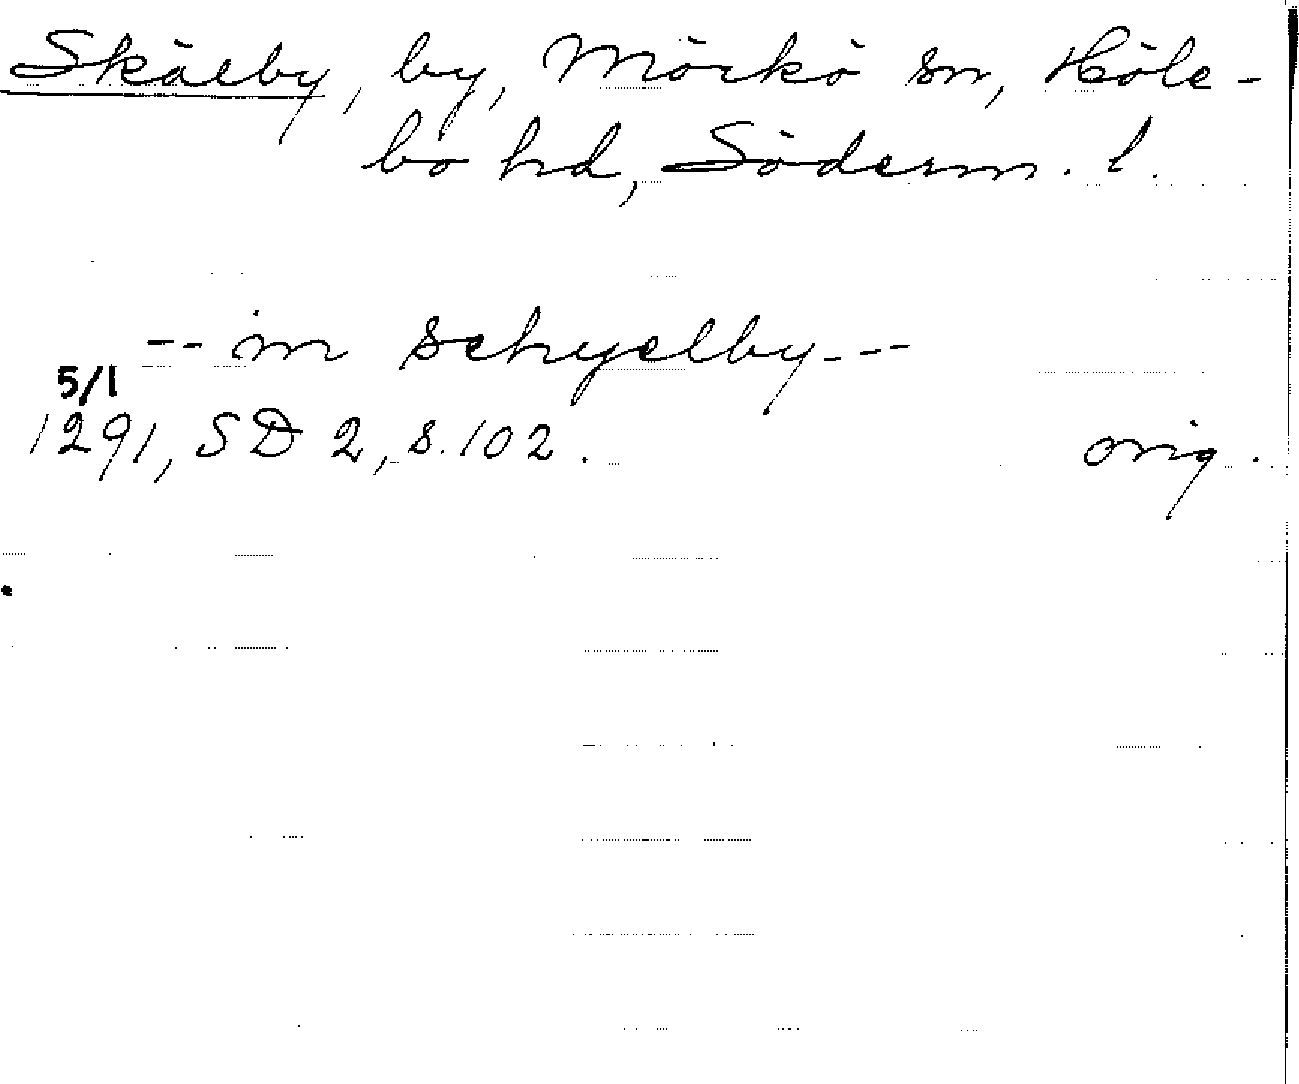 Skälby, by, Mörkö sn, Höle-
bo hd, Söderm. l.
-- in schyelby ---
5/1
1291, SD 2, s. 102. orig.